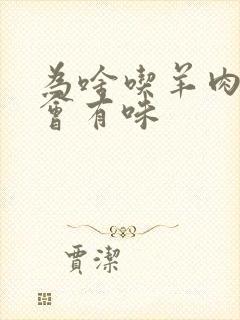 為啥喫羊肉
會有咪
賈潔